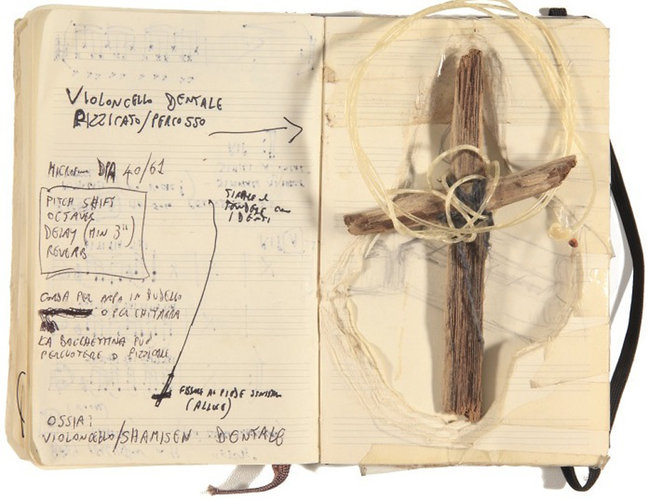 VIOLONCELLO DENTALE
PIZZICATO/PERCOSSO
DPA 40/61
TIRARE E
TENDERE CON
I DENTI
PITCH SHIFT
OCTAVER
DELAY (MIN 3")
REVERB
CORDA PER ARPA IN BUDELLO
O PER CHITARRA
LA BACCHETTINA PUÒ
PERCUOTERE O PIZZICARE
AL PIEDE SINISTRO
(ALLUCE)
OSSIA:
VIOLONCELLO/SHAMISEN DENTALE